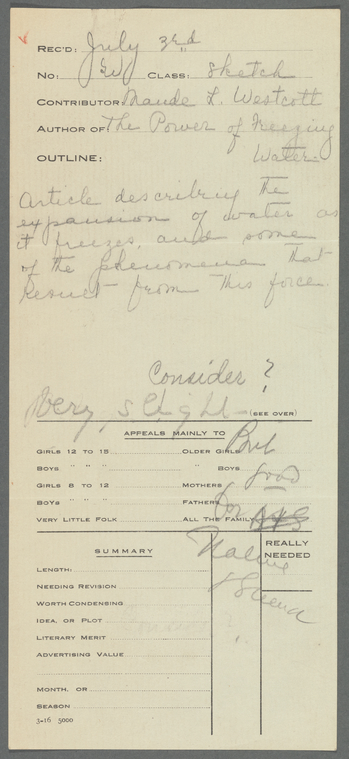 REC'D: July 3rd
NO: CLASS: Sketch
CONTRIBUTOR: Maude L. Westcott
AUTHOR OF: The Power of Freezing
OUTLINE: Water
Article describing the
expansion of water as
it freezes, and some
of the phenomena that
result from this force.
Consider?
Very slight (SEE OVER)
APPEALS MAINLY TO But
GIRLS 12 TO 15 OLDER GIRLS
BOYS " " " " BOYS good
GIRLS 8 TO 12 MOTHERS
BOYS " " " FATHERS for
VERY LITTLE FOLK ALL THE FAMILY
Nature
& Science
SUMMARY REALLY NEEDED
LENGTH:
NEEDING REVISION
WORTH CONDENSING
IDEA, OR PLOT
LITERARY MERIT
ADVERTISING VALUE
MONTH, OR
SEASON
3-16 5000